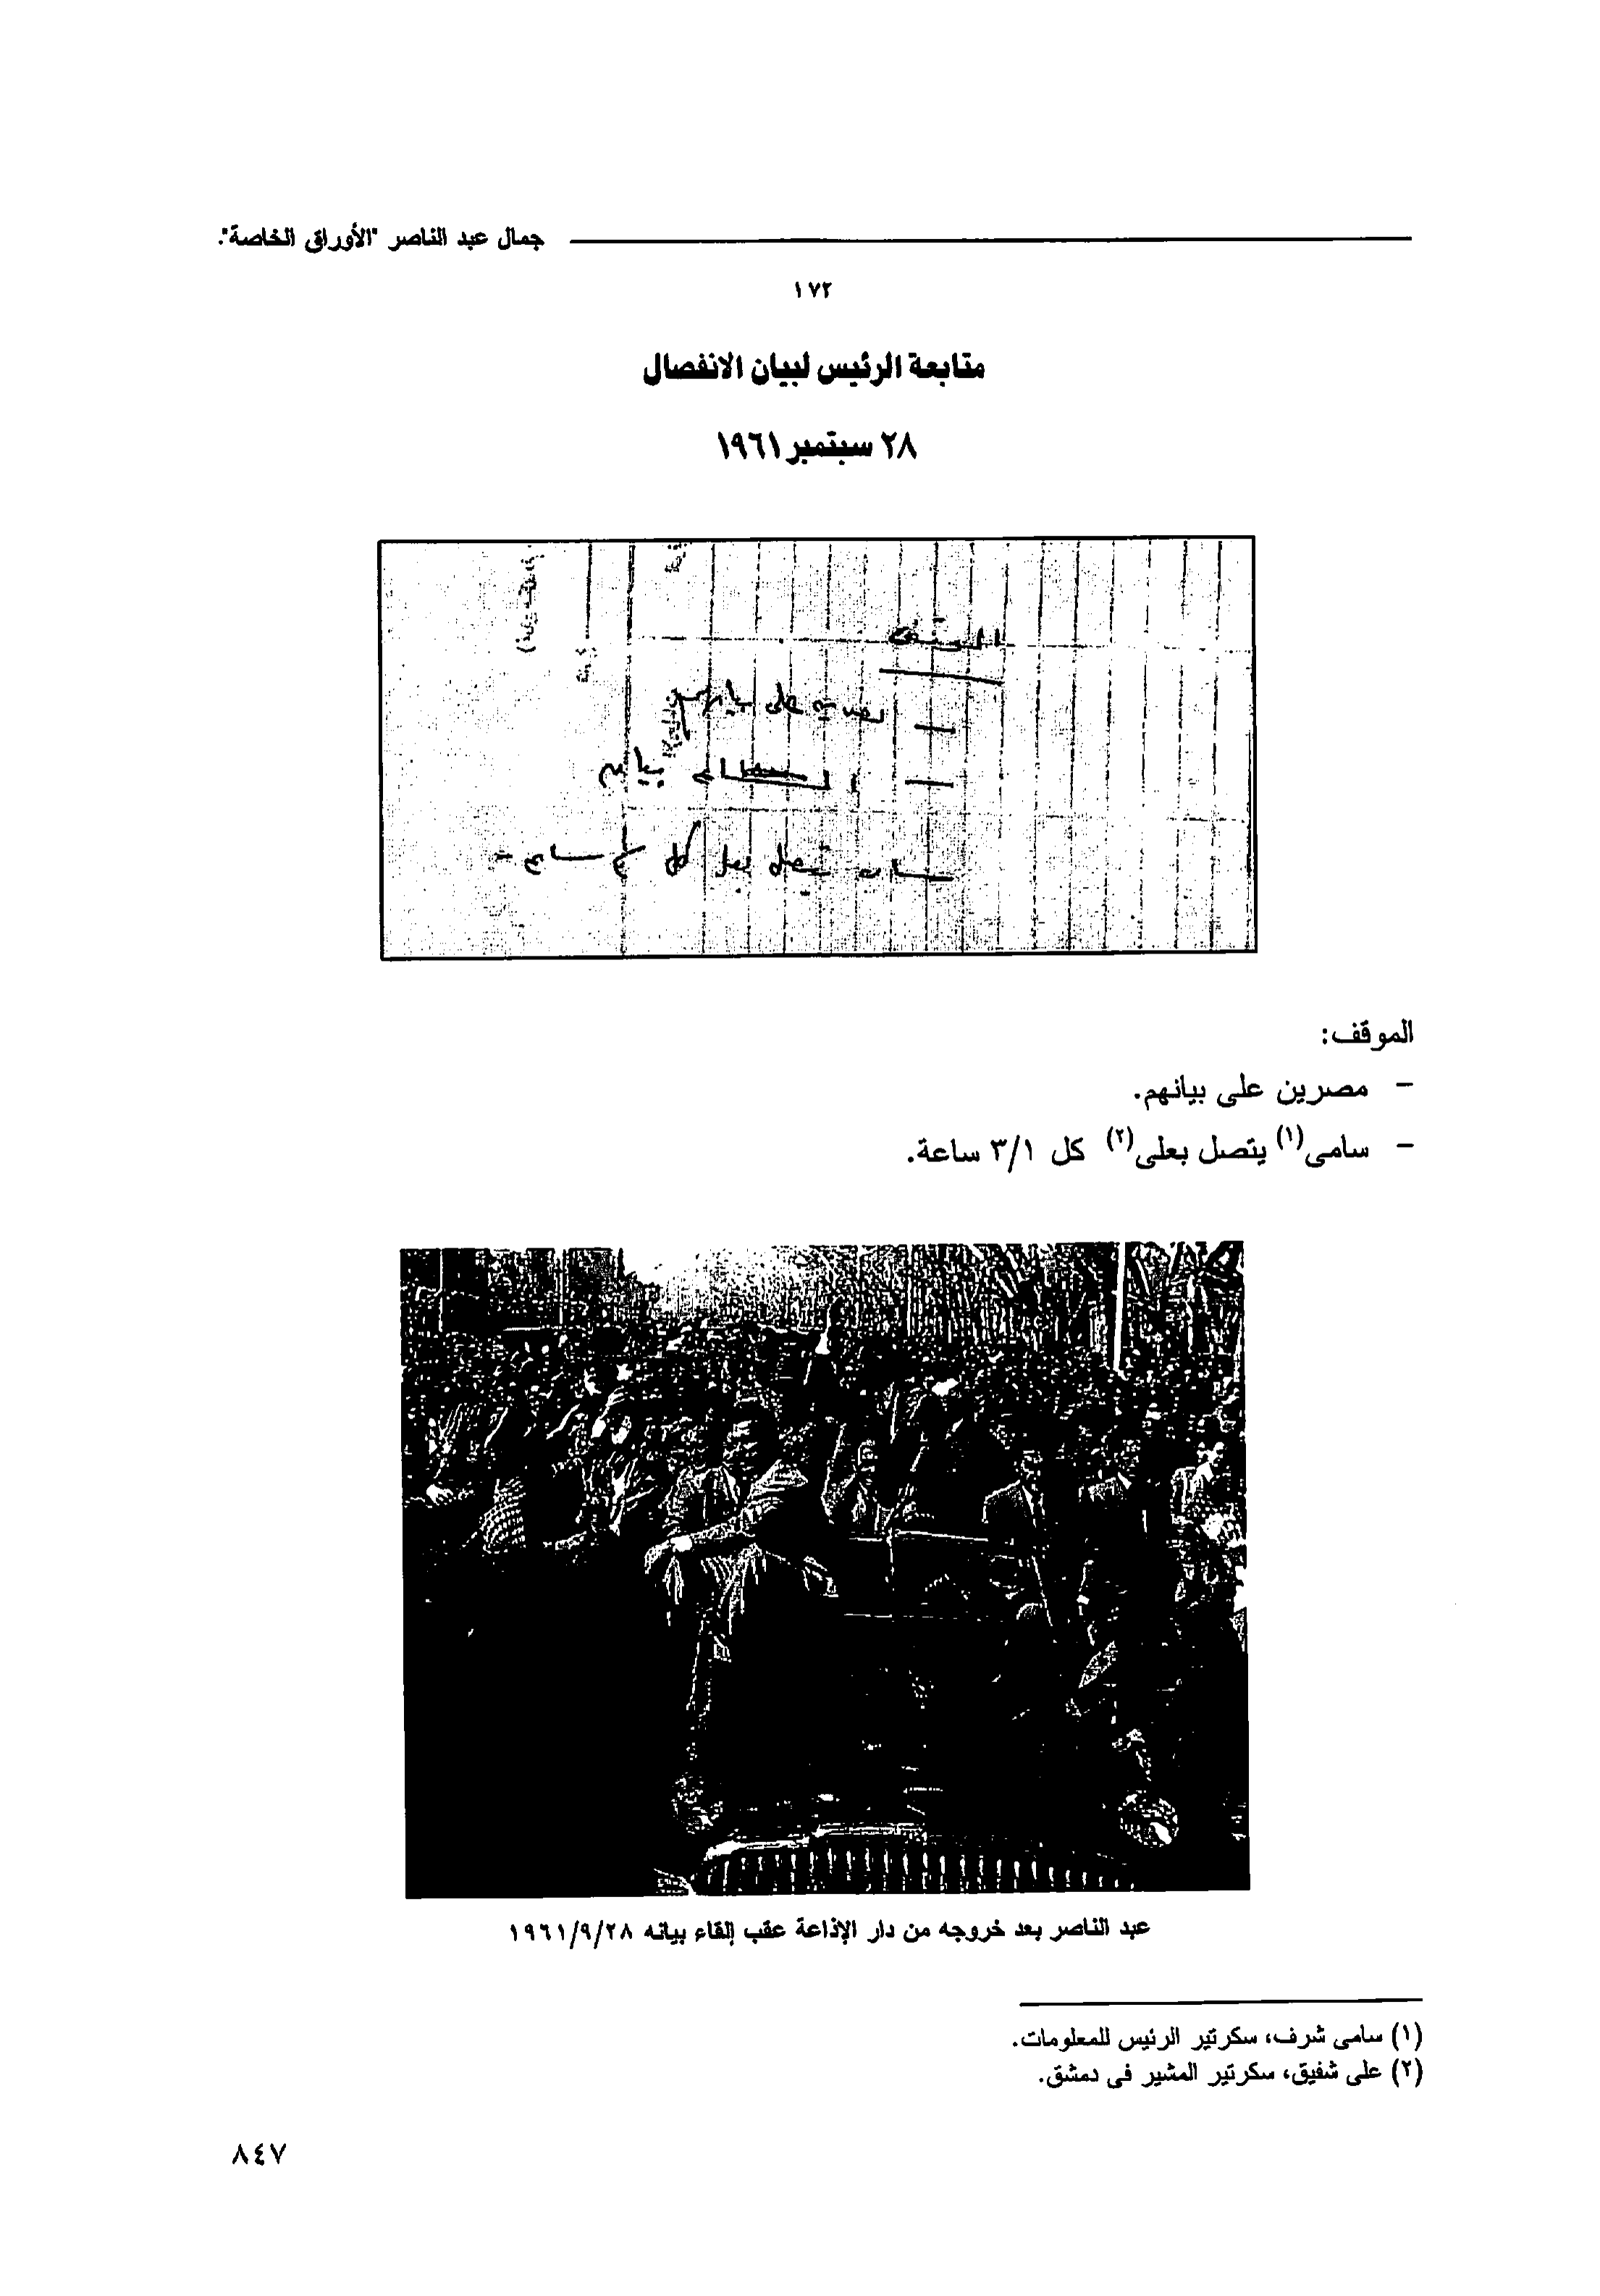 جمال عبد الناصر "الأوراق الخاصة".
١٧٢
متابعة الرئيس لبيان الانفصال
٢٨ سبتمبر ١٩٦١
الموقف
على
كل
الموقف:
- مصرين على بيانهم.
- سامى(١) يتصل بعلى(٢) كل ٣/١ ساعة.
عبد الناصر بعد خروجه من دار الإذاعة عقب إلقاء بيانه ١٩٦١/٩/٢٨
(١) سامى شرف، سكرتير الرئيس للمعلومات.
(٢) على شفيق، سكرتير المشير فى دمشق.
٨٤٧